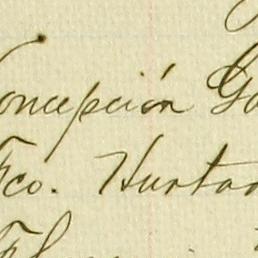 Concepción Go
Fco. Hurtad